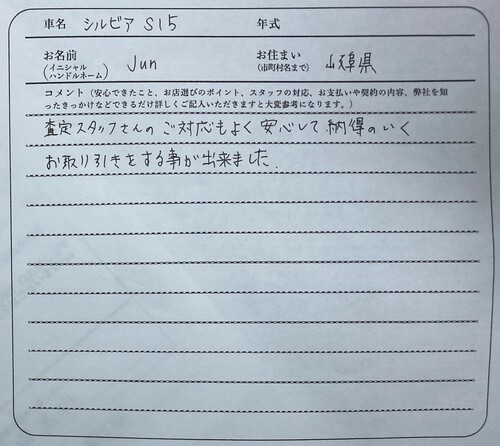 車名 シルビア S15 年式
お名前 Jun お住まい
(イニシャル (市町村名まで) 県
ハンドルネーム)
コメント(安心できたこと、お店選びのポイント、スタッフの対応、お支払いや契約の内容、弊社を知
ったきっかけなどできるだけ詳しくご記入いただきますと大変参考になります。)
査定スタッフさんのご対応もよく安心して納得のいく
お取り引きをする事が出来ました.